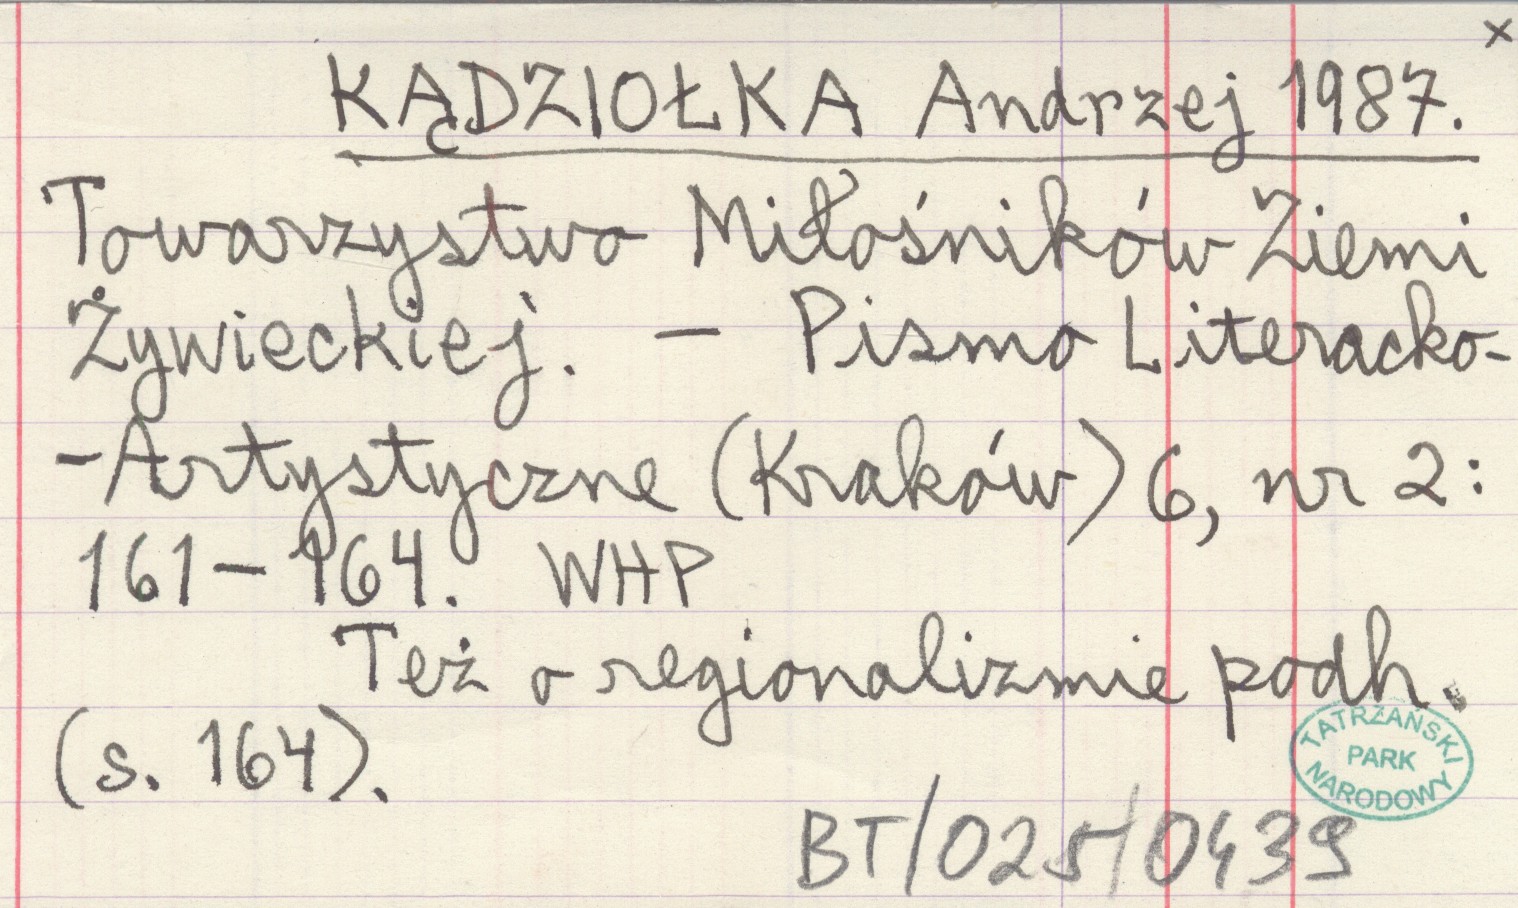 ×
KĄDZIOŁKA Andrzej 1987.
Towarzystwo Miłośników Ziemi
Żywieckiej. – Pismo Literacko-
-Artystyczne (Kraków) 6, nr 2:
161–164. WHP
Też o regionalizmie podh.
(s. 164).
TATRZAŃSKI
PARK
NARODOWY
BT/025/0439